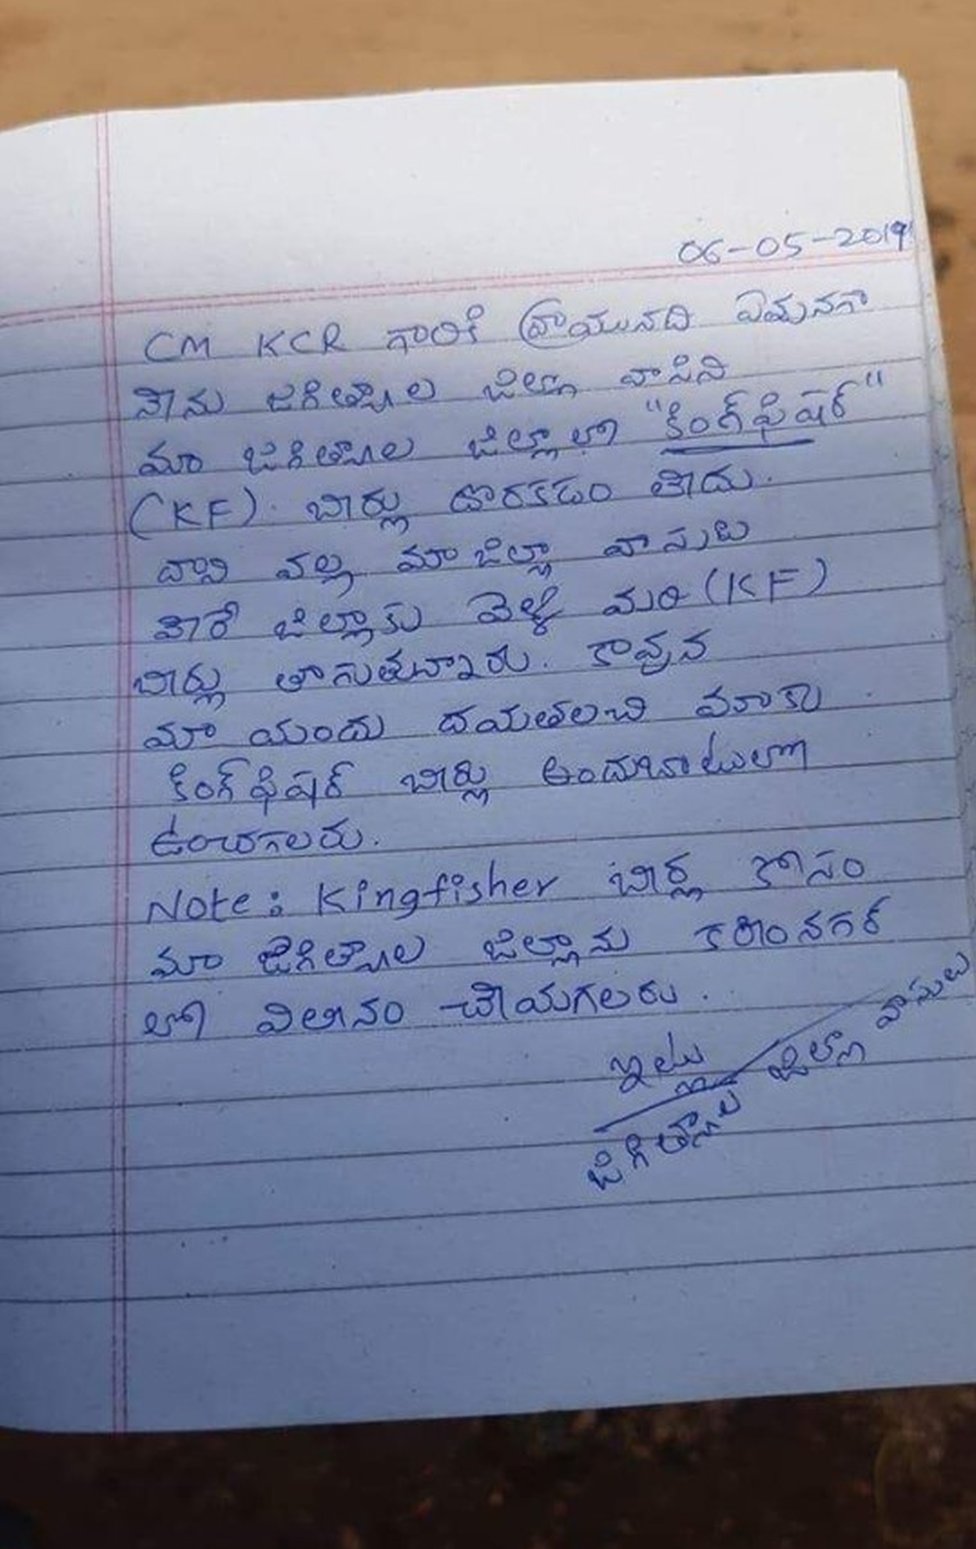 06-05-2019
CM KCR గారికి వ్రాయునది ఏమనగా
నేను జగిత్యాల జిల్లా వాసిని
మా జగిత్యాల జిల్లాలో "కింగ్‌ఫిషర్"
(KF). బీర్లు దొరకడం లేదు.
దాని వల్ల మా జిల్లా వాసులు
వేరే జిల్లాకు వెళ్ళి మరి (KF)
బీర్లు తాగుతున్నారు. కావున
మా యందు దయతలచి మాకు
కింగ్‌ఫిషర్ బీర్లు అందుబాటులో
ఉంచగలరు.
Note: Kingfisher బీర్ల కోసం
మా జగిత్యాల జిల్లాను కరీంనగర్
లో విలీనం చేయగలరు.
ఇట్లు
జగిత్యాల జిల్లా వాసులు